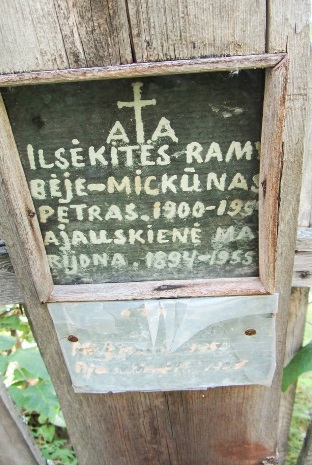 A A
ILSĖKITĖS RAMY
BĖJE-MICKŪNAS
PETRAS. 1900-195
AJAUSKIENĖ MA
RIJONA. 1894-1955